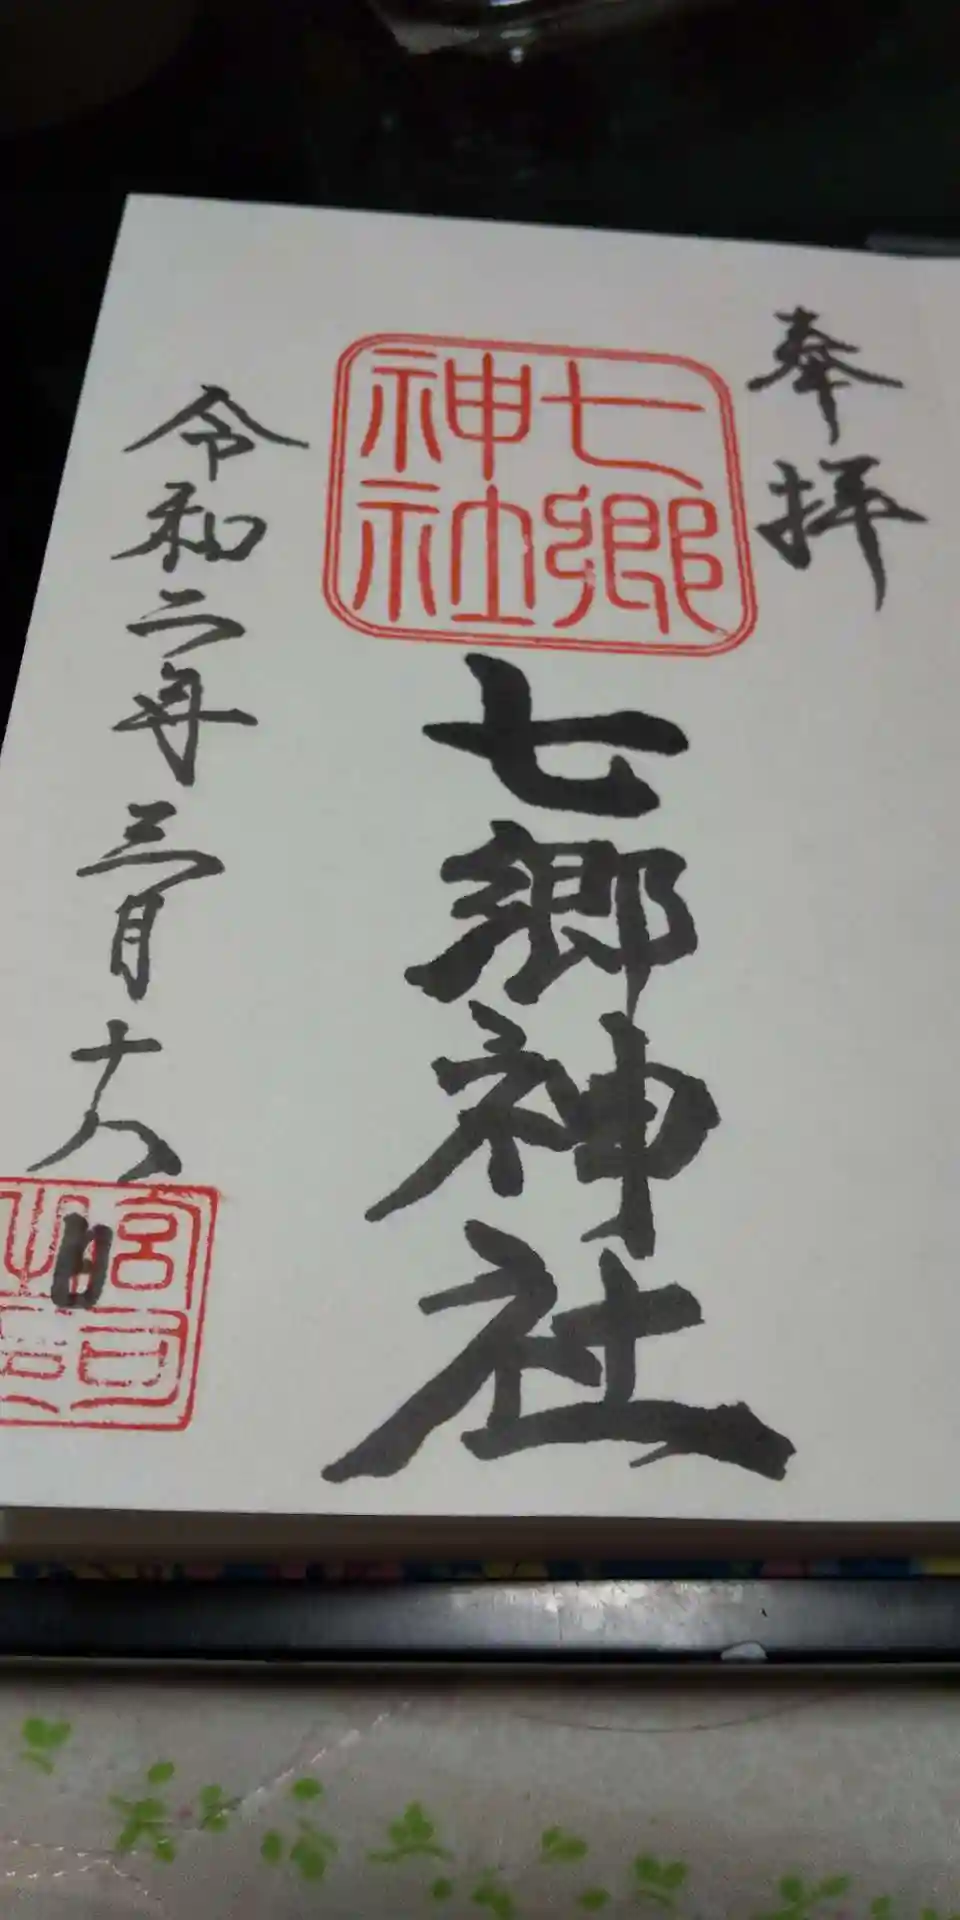 奉拝
七郷
神社
七郷神社
令和二年三月十八日
宮司